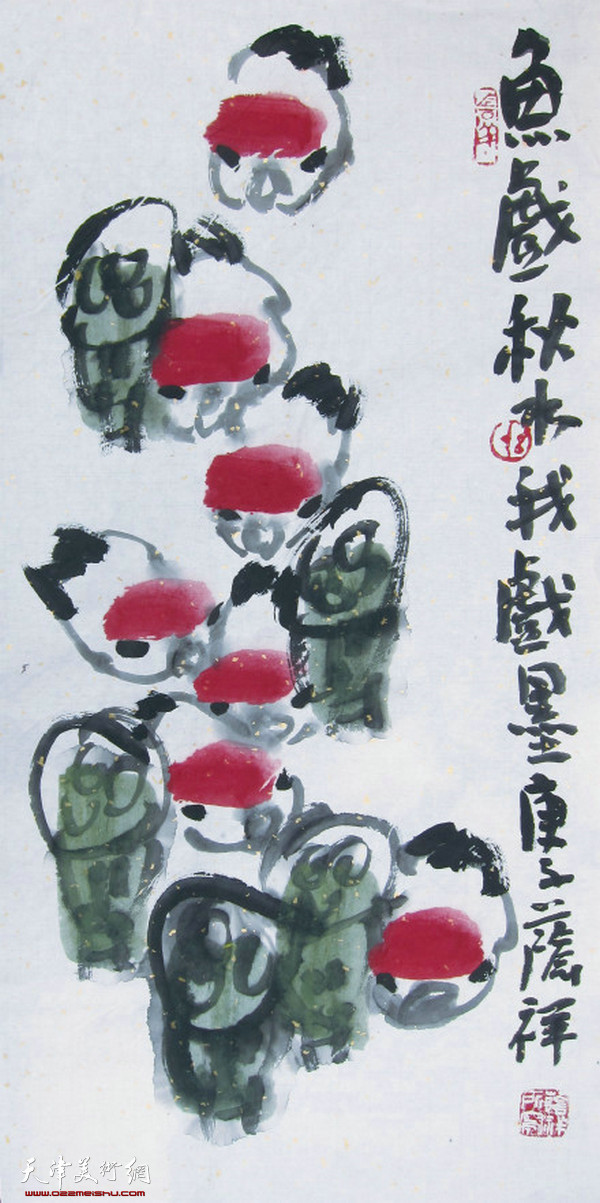 魚戲秋水我戲墨庚子蔭祥
天津美術網
www.022meishu.com